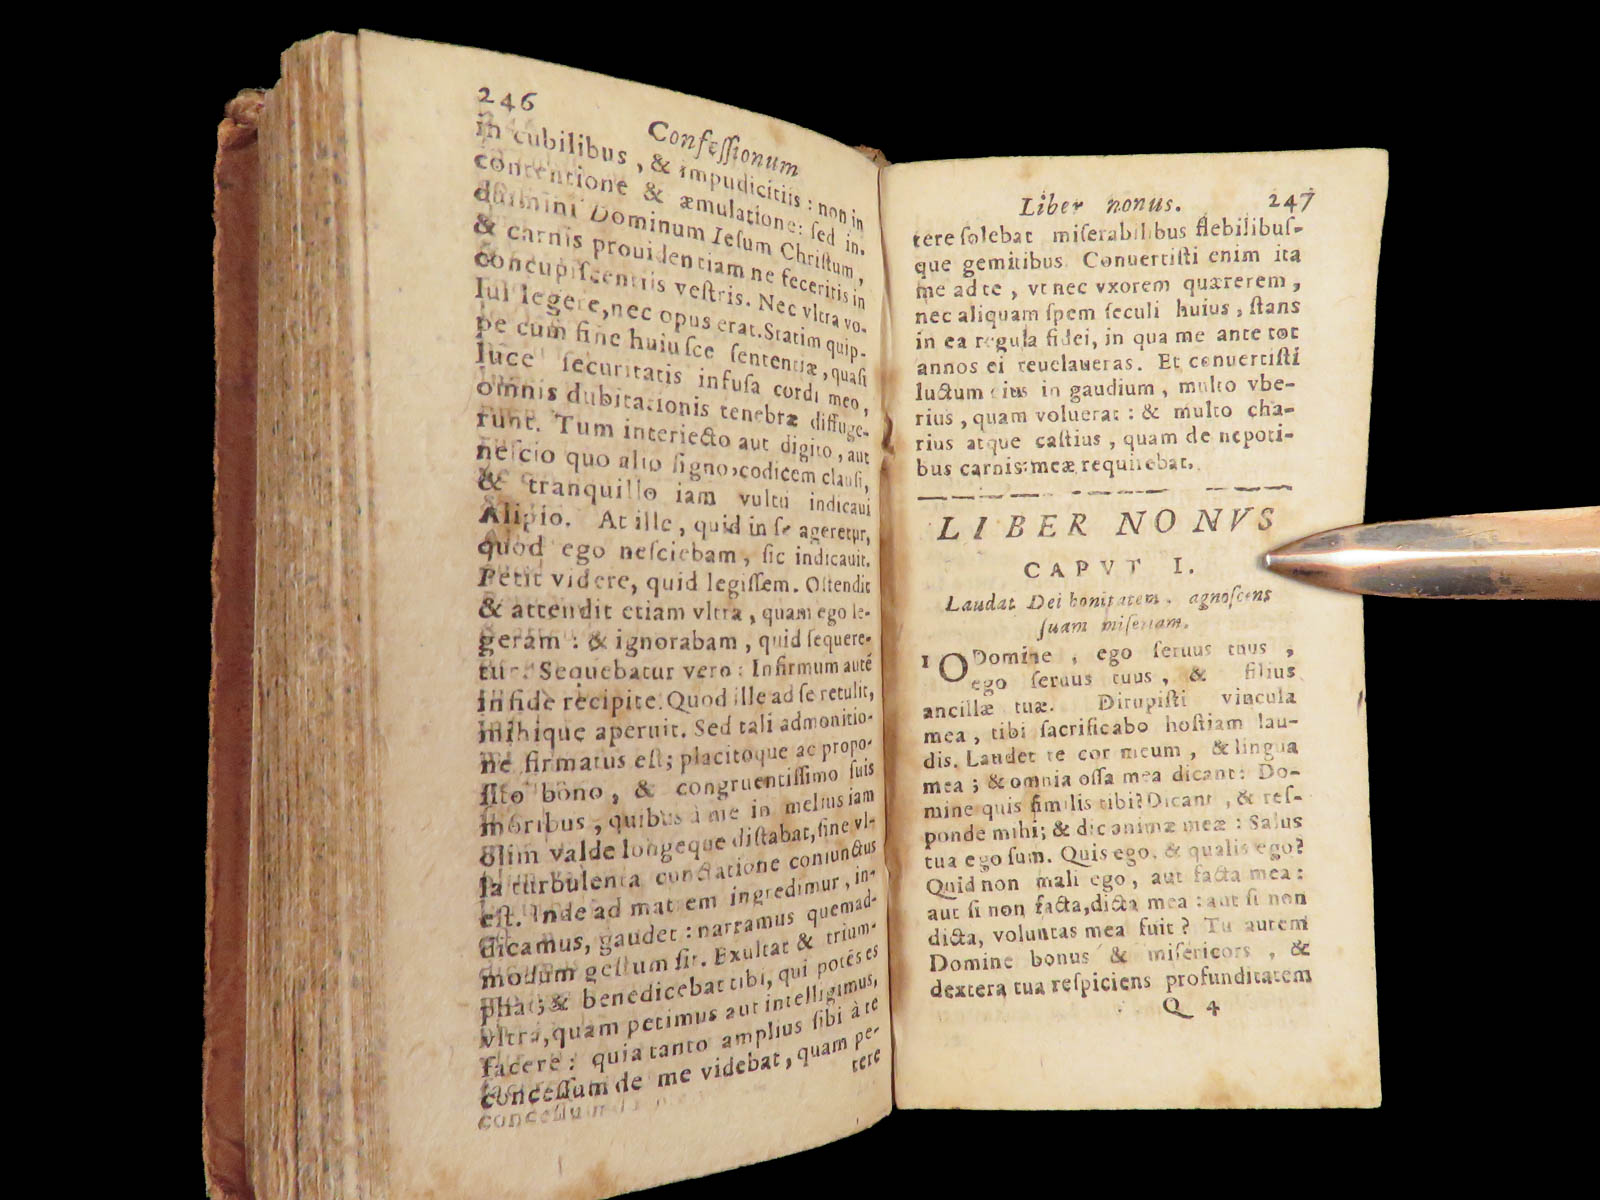 246
Confessionum
in cubilibus, & impudicitiis: non in
contentione & æmulatione: sed in-
duimini Dominum Iesum Christum,
& carnis prouidentiam ne feceritis in
concupiscentiis vestris. Nec vltra vo-
lui legere, nec opus erat. Statim quip-
pe cum fine huiusce sententiæ, quasi
luce securitatis infusa cordi meo,
omnis dubitationis tenebræ diffuge-
runt. Tum interiecto aut digito, aut
nescio quo alio signo, codicem clausi,
& tranquillo iam vultu indicaui
Alipio. At ille, quid in se ageretur,
quod ego nesciebam, sic indicauit.
Petit videre, quid legissem. Ostendit
& attendit etiam vltra, quam ego le-
geram: & ignorabam, quid sequere-
tur. Sequebatur vero: Infirmum autē
in fide recipite. Quod ille ad se retulit,
mihique aperuit. Sed tali admonitio-
ne firmatus est; placitoque ac propo-
sito bono, & congruentissimo suis
moribus, quibus à me in melius iam
olim valde longeque distabat, sine vl-
la turbulenta cunctatione coniunctus
est. Inde ad matrem ingredimur, in-
dicamus, gaudet: narramus quemad-
modum gestum sit. Exultat & trium-
phat; & benedicebat tibi, qui potēs es
vltra, quam petimus aut intelligimus,
facere: quia tanto amplius sibi à te
concessum de me videbat, quam pe-
tere
Liber nonus. 247
tere solebat miserabilibus flebilibus-
que gemitibus. Conuertisti enim ita
me ad te, vt nec vxorem quærerem,
nec aliquam spem seculi huius, stans
in ea regula fidei, in qua me ante tot
annos ei reuelaueras. Et conuertisti
luctum eius in gaudium, multo vbe-
rius, quam voluerat: & multo cha-
rius atque castius, quam de nepoti-
bus carnis meæ requirebat.
LIBER NONVS
CAPVT I.
Laudat Dei bonitatem, agnoscens
suam miseriam.
1 O Domine, ego seruus tuus,
ego seruus tuus, & filius
ancillæ tuæ. Dirupisti vincula
mea, tibi sacrificabo hostiam lau-
dis. Laudet te cor meum, & lingua
mea; & omnia ossa mea dicant: Do-
mine quis similis tibi? Dicant, & res-
ponde mihi; & dic animæ meæ: Salus
tua ego sum. Quis ego, & qualis ego?
Quid non mali ego, aut facta mea:
aut si non facta, dicta mea: aut si non
dicta, voluntas mea fuit? Tu autem
Domine bonus & misericors, &
dextera tua respiciens profunditatem
Q 4